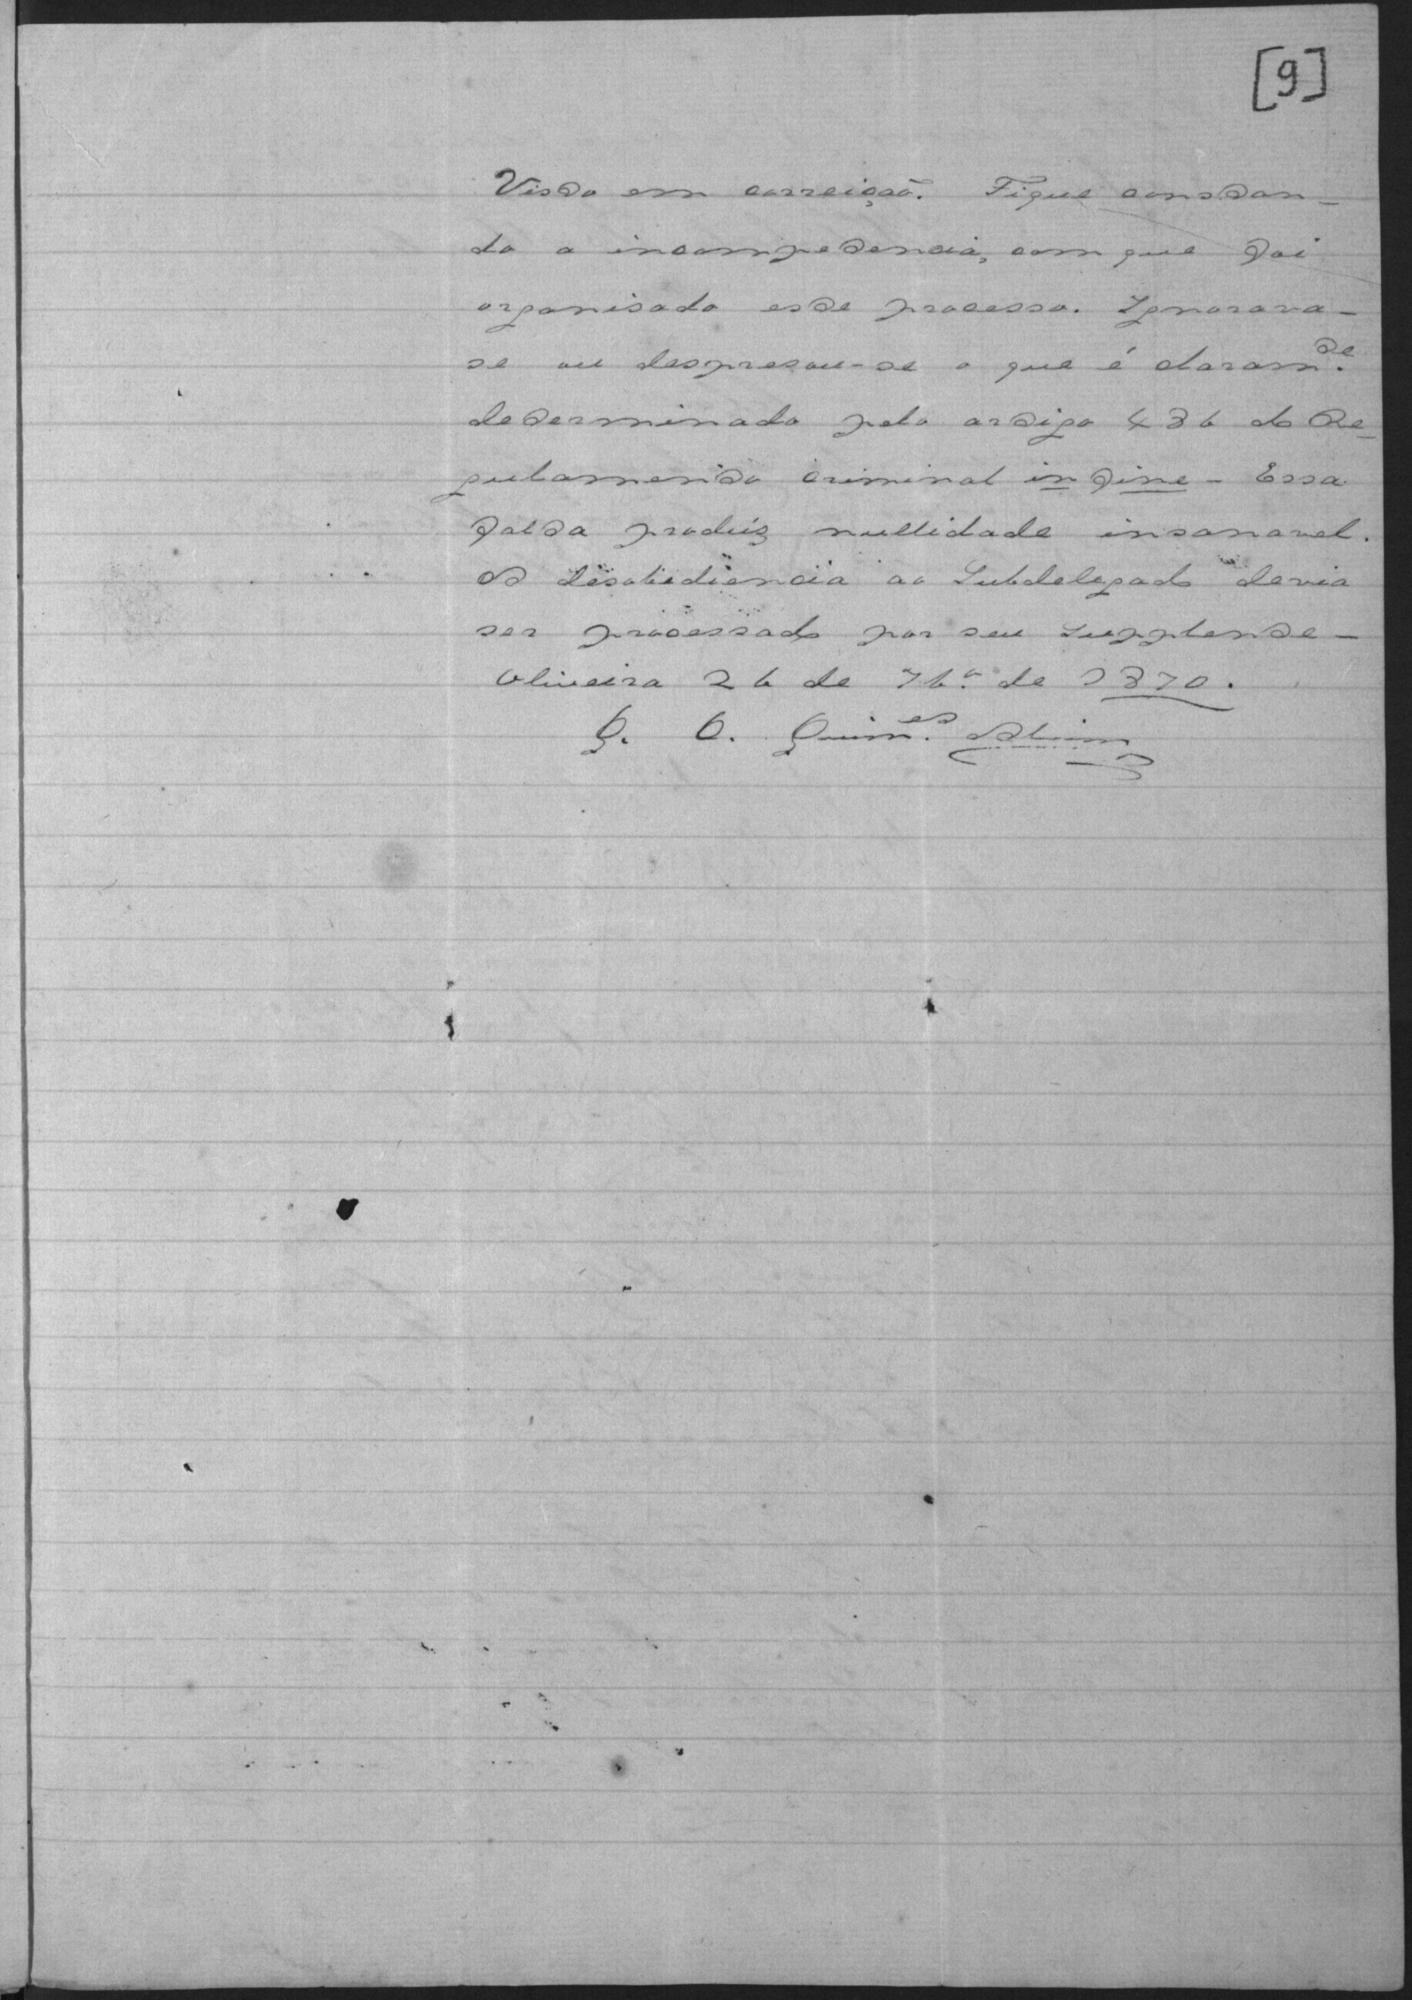 [9]
Visto em correiçaõ. Fique constan-
do a incompetencia, com que foi
organisado este processo. Ignorava-
se ou despresou-se o que é claram.te
determinado pelo artigo 486 do Re-
gulamento criminal in fine - Essa
falta produz nullidade insanavel.
A desobediencia ao Subdelegado devia
ser processado por seu Supplente -
Oliveira 26 de 7b.o de 1870.
Guim.es Alvim